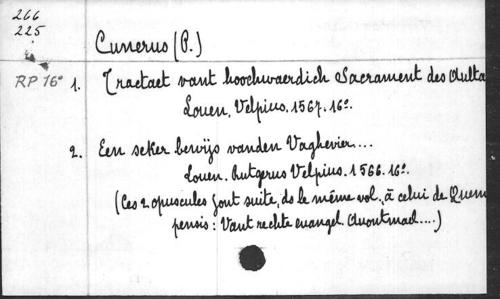 266
225
Cunerus (P.)
RP 16°
1. Tractaet vant hoochwaerdich Sacrament des Aulta
Louen, Velpius. 1567. 16°.
2. Een seker bewijs vanden Vaghevier....
Louen. Rutgerus Velpius. 1566. 16°.
(Ces 2 opuscules font suite, ds le même vol., à celui de Quem
pensis: Vant rechte euangel. Auontmael....)